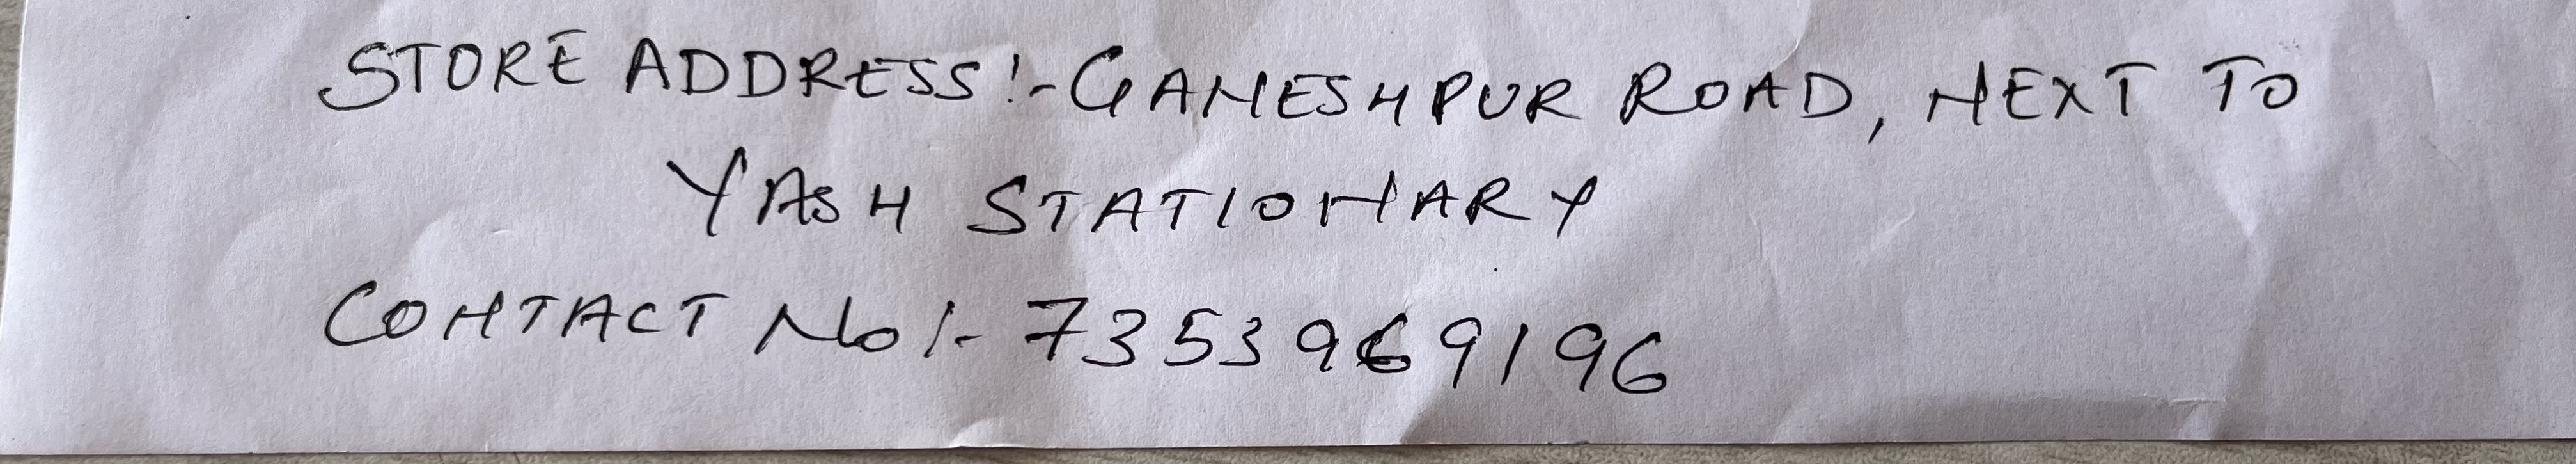 STORE ADDRESS:- GANESHPUR ROAD, NEXT TO
YASH STATIONARY
CONTACT No:- 7353969196